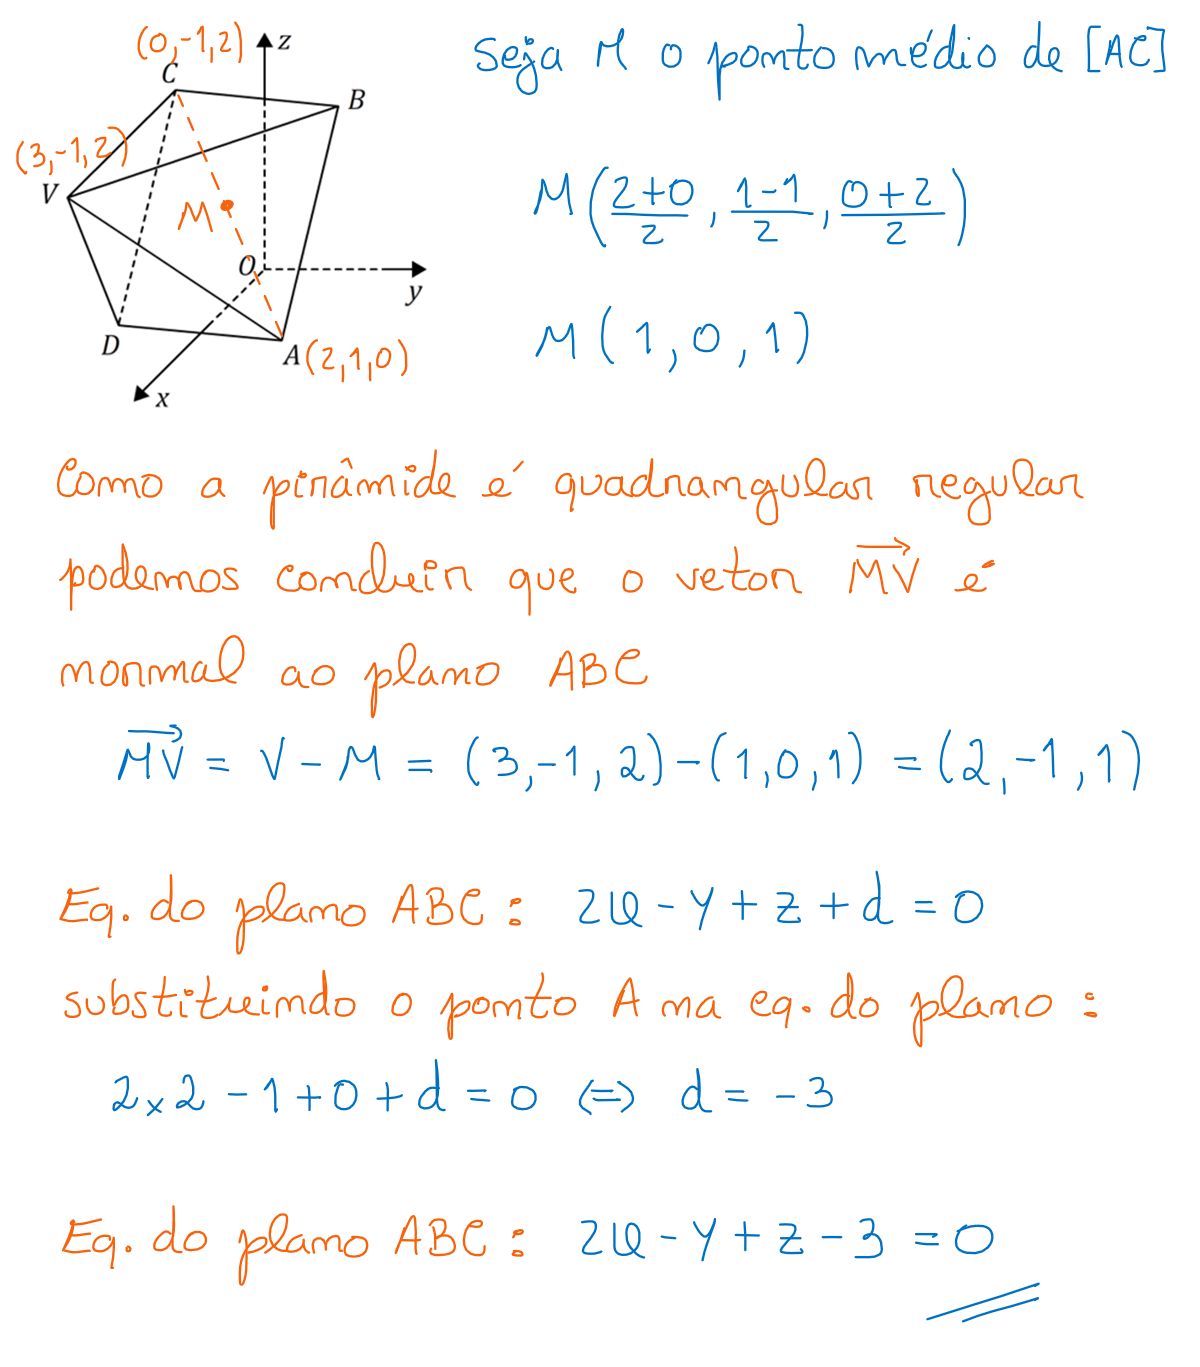 (0,-1,2)
z
C
B
(3,-1,2)
V
M
O
y
D
A (2,1,0)
x
Seja M o ponto médio de [AC]
M(2+0/2, 1-1/2, 0+2/2)
M(1,0,1)
Como a pirâmide é quadrangular regular
podemos concluir que o vetor MV é
normal ao plano ABC
MV = V - M = (3,-1,2)-(1,0,1) = (2,-1,1)
Eq. do plano ABC: 2x - y + z + d = 0
substituindo o ponto A na eq. do plano:
2×2 - 1 + 0 + d = 0 ⇔ d = -3
Eq. do plano ABC: 2x - y + z - 3 = 0